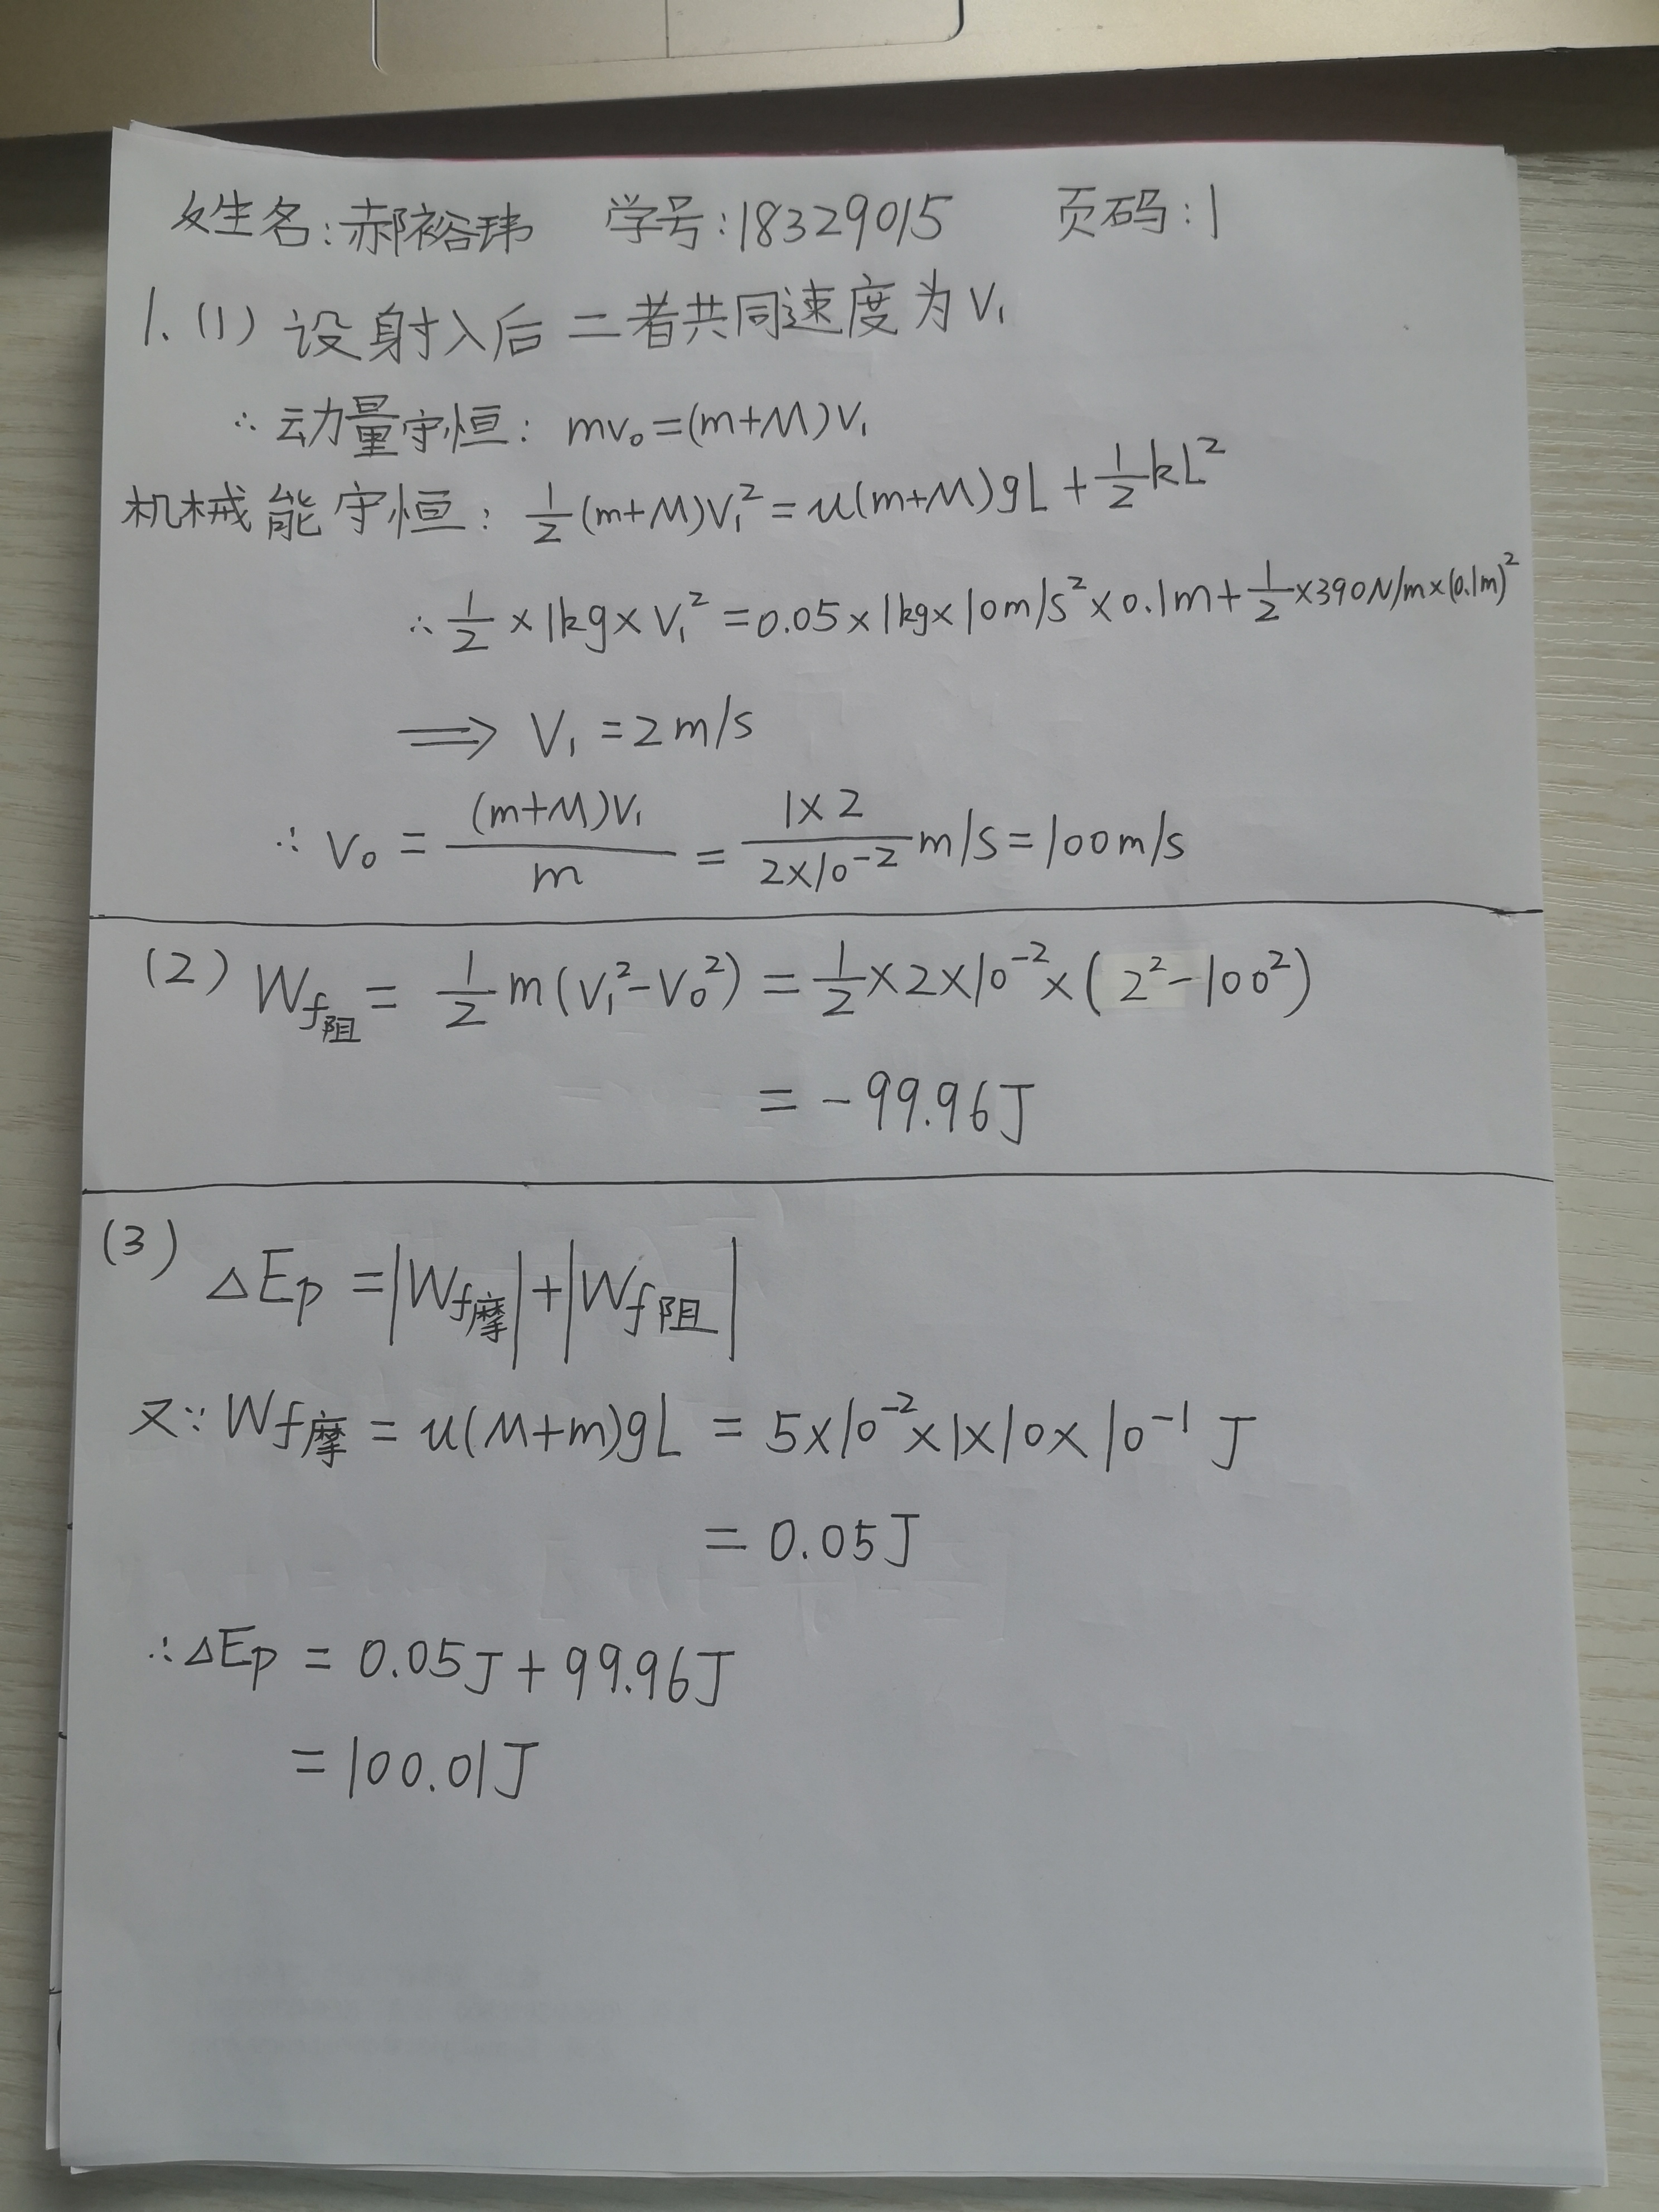 姓名:郝裕玮 学号:18329015 页码:1
1.(1) 设射入后二者共同速度为V₁
∴动量守恒: mv₀=(m+M)V₁
机械能守恒: 1/2(m+M)V₁²=u(m+M)gL+1/2kL²
∴1/2×1kg×V₁²=0.05×1kg×10m/s²×0.1m+1/2×390N/m×(0.1m)²
⟹ V₁=2m/s
∴ V₀=(m+M)V₁/m=1×2/2×10⁻² m/s=100m/s
(2) Wf阻=1/2m(V₁²-V₀²)=1/2×2×10⁻²×(2²-100²)
=-99.96J
(3) △Ep=|Wf摩|+|Wf阻|
又∵Wf摩=u(M+m)gL=5×10⁻²×1×10×10⁻¹ J
=0.05J
∴△Ep=0.05J+99.96J
=100.01J